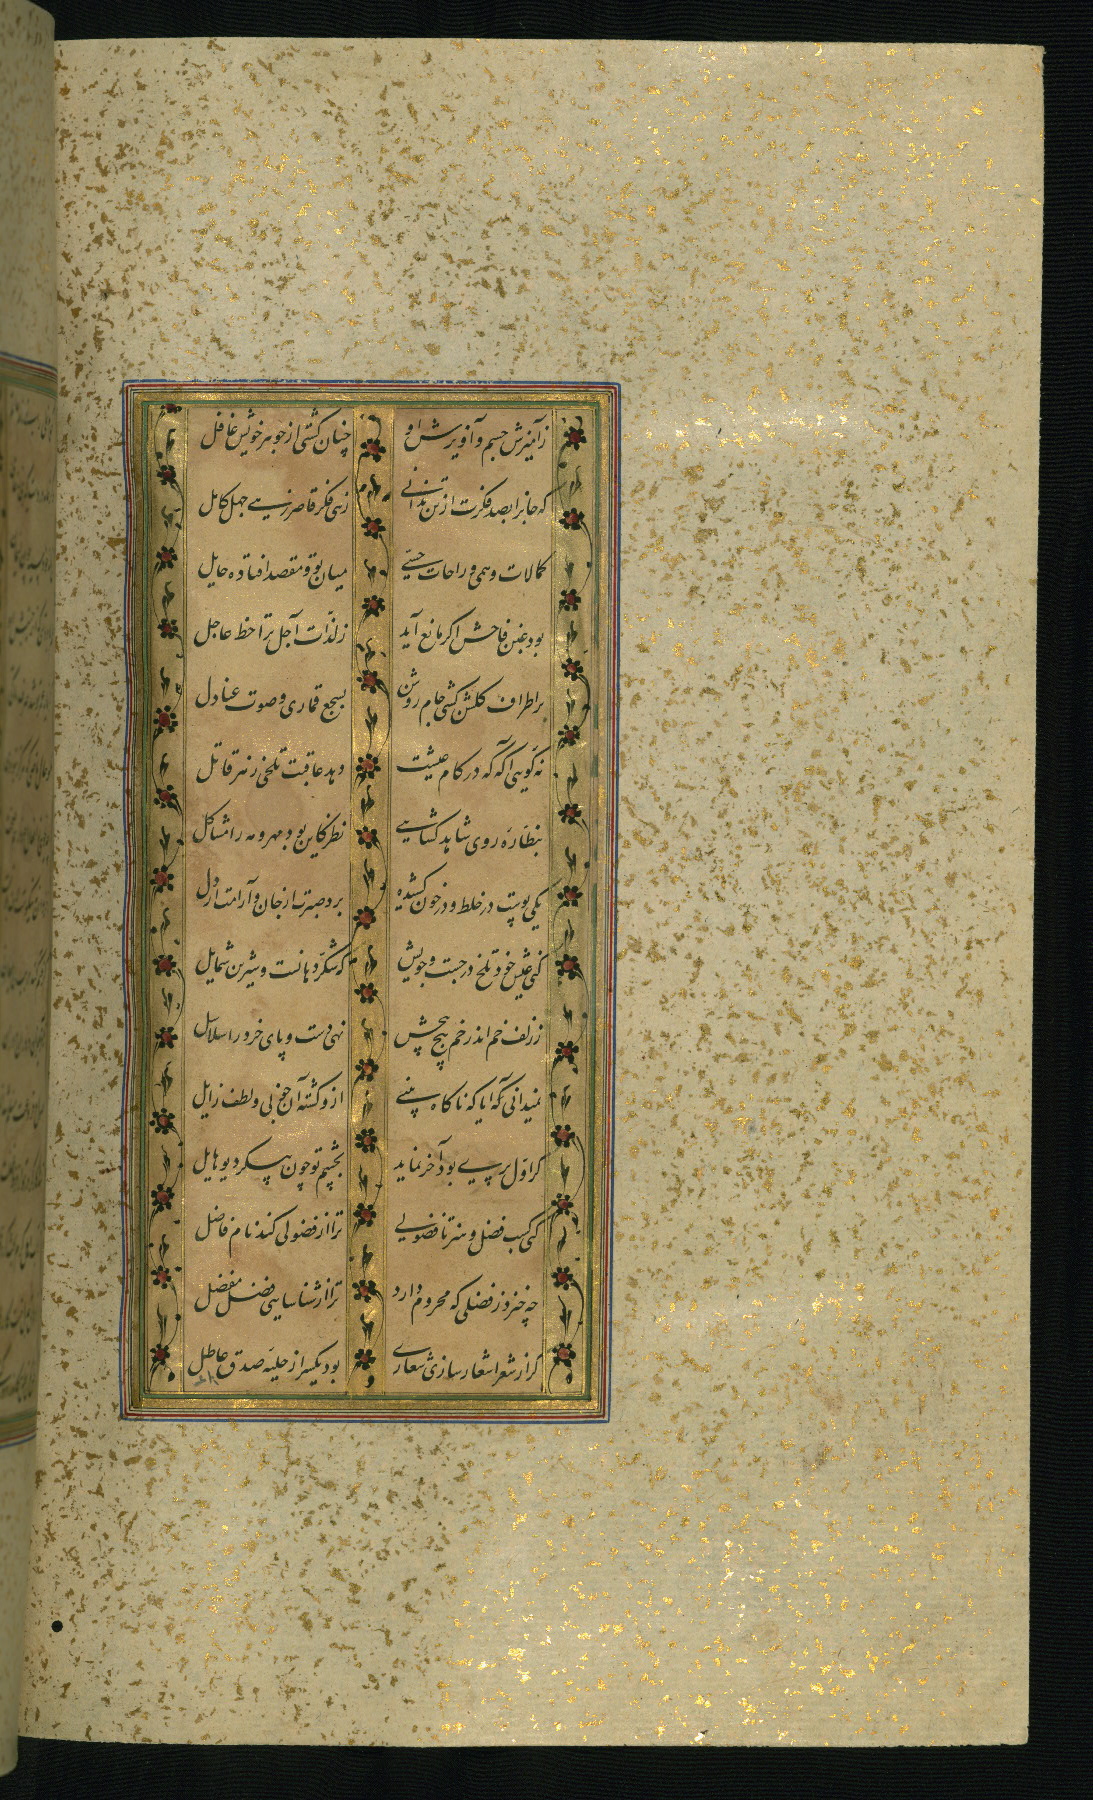 زآمیزش جسم و آویزش او چنان گشتی از جوهر خویش غافل
که جانرا بصد فکرت از تن ندانی زهی فکر قاصر زهی جهل کامل
کمالات وهمی و راحات حسی میان تو و مقصد افتاده حایل
بود غبن فاحش اگر مانع آید ز لذات آجل ترا حظ عاجل
بر اطراف گلشن کشی جام روشن بسجع قماری و صوت عنادل
نه گویی آگه که در کام عیشت دهد عاقبت تلخی زهر قاتل
بنظاره روی شاهد گشایی نظر کاین بود مهر و مه را مشاکل
یکی پوست در خلط و در خون کشیده برد صبرت از جان و آرامت از دل
کنی عیش خود تلخ در جست و جویش که شکر دهانست و شیرین شمایل
ز زلف خم اندر خم پیچ پیچش نهی دست و پای خرد را سلاسل
نمیدانی آنرا که ناگاه بینی ازو گشته آن خوبی و لطف زایل
گر اول پری بود آخر نماید بچشم تو چون پیکر دیو هایل
کنی کسب فضل و هنر تا فضولی ترا از فضولی کند نام فاضل
چه خیزد ز فضلی که محروم دارد ترا از شناسایی فضل مفضل
گر از شعر اشعار سازی شعاری بود یکسر از حلیه صدق عاطل